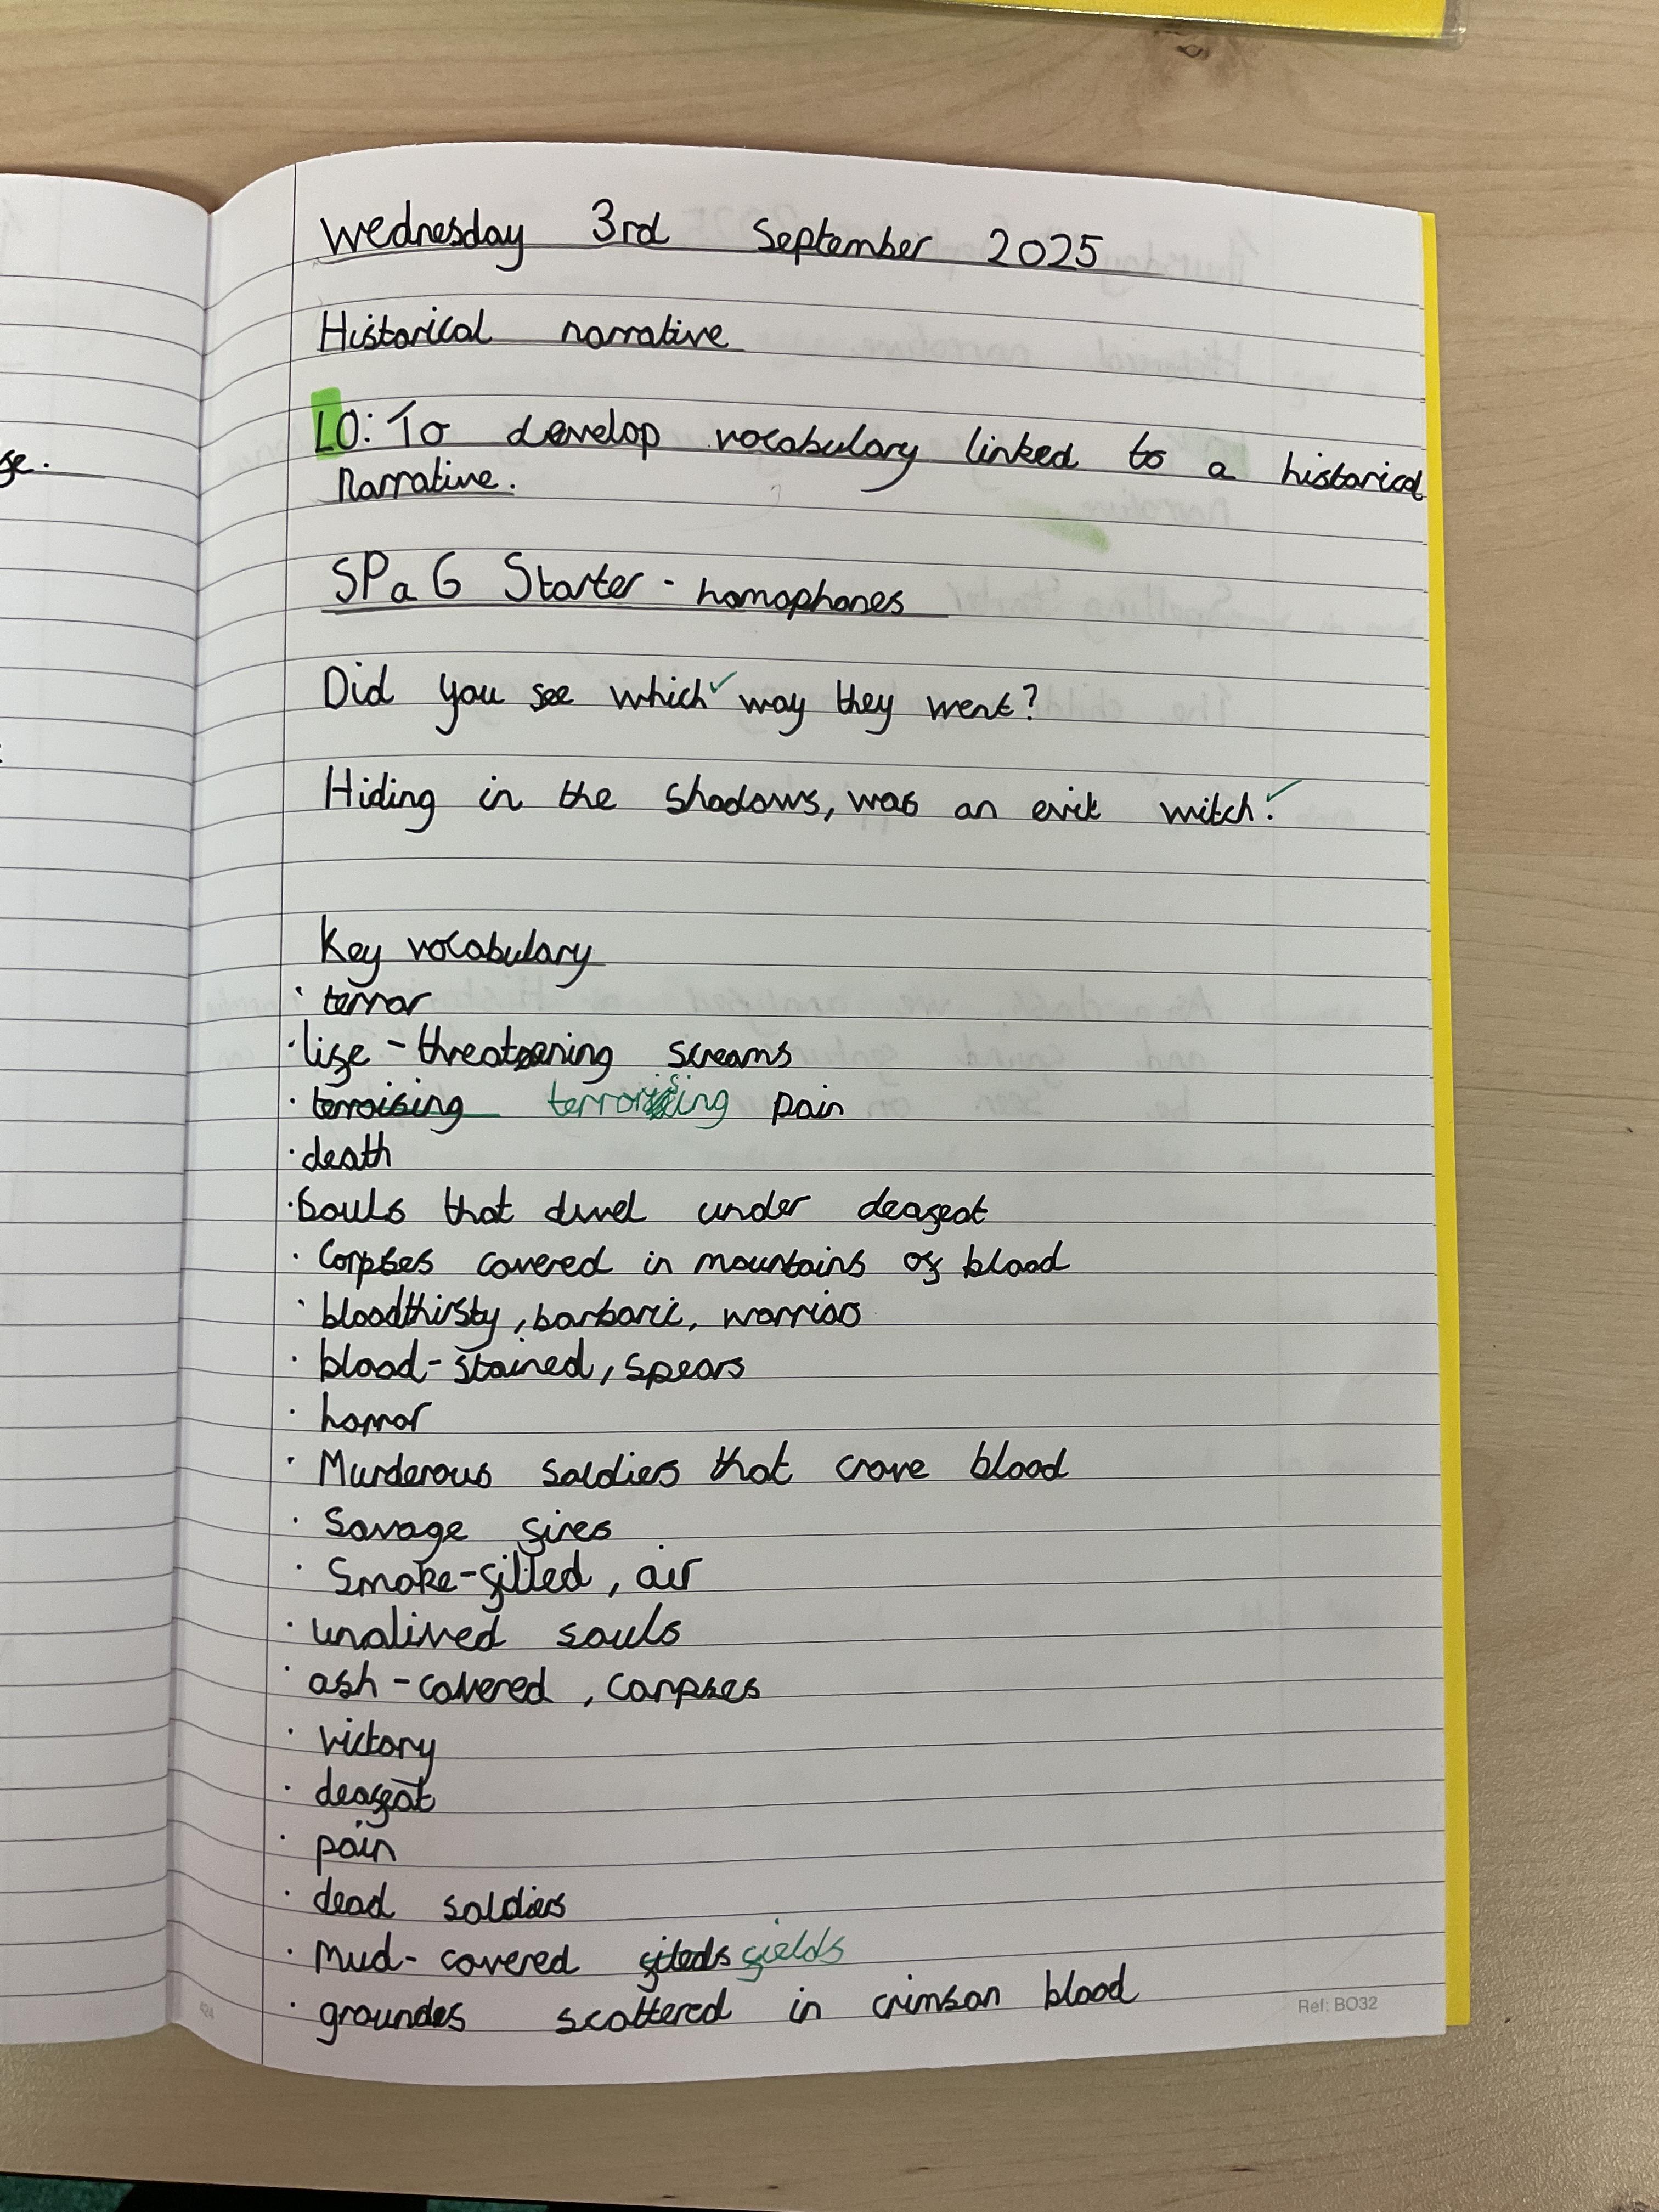 Wednesday 3rd September 2025
Historical narrative
LO: To develop vocabulary linked to a historical
Narrative.
SPaG Starter - homophones
Did you see which way they went?
Hiding in the shadows, was an evil witch.
Key vocabulary
· terror
· life-threatening screams
· terroising terrorising pain
· death
· Souls that dwel under deafeat
· Corpses covered in mountains of blood
· bloodthirsty, barbaric, warrios
· blood-stained, spears
· horror
· Murderous soldies that crave blood
· Savage fires
· Smoke-filled, air
· unalived souls
· ash-covered, corpses
· victory
· deafeat
· pain
· dead soldies
· Mud-covered fields
· groundes scattered in crimson blood
Ref: BO32
se.